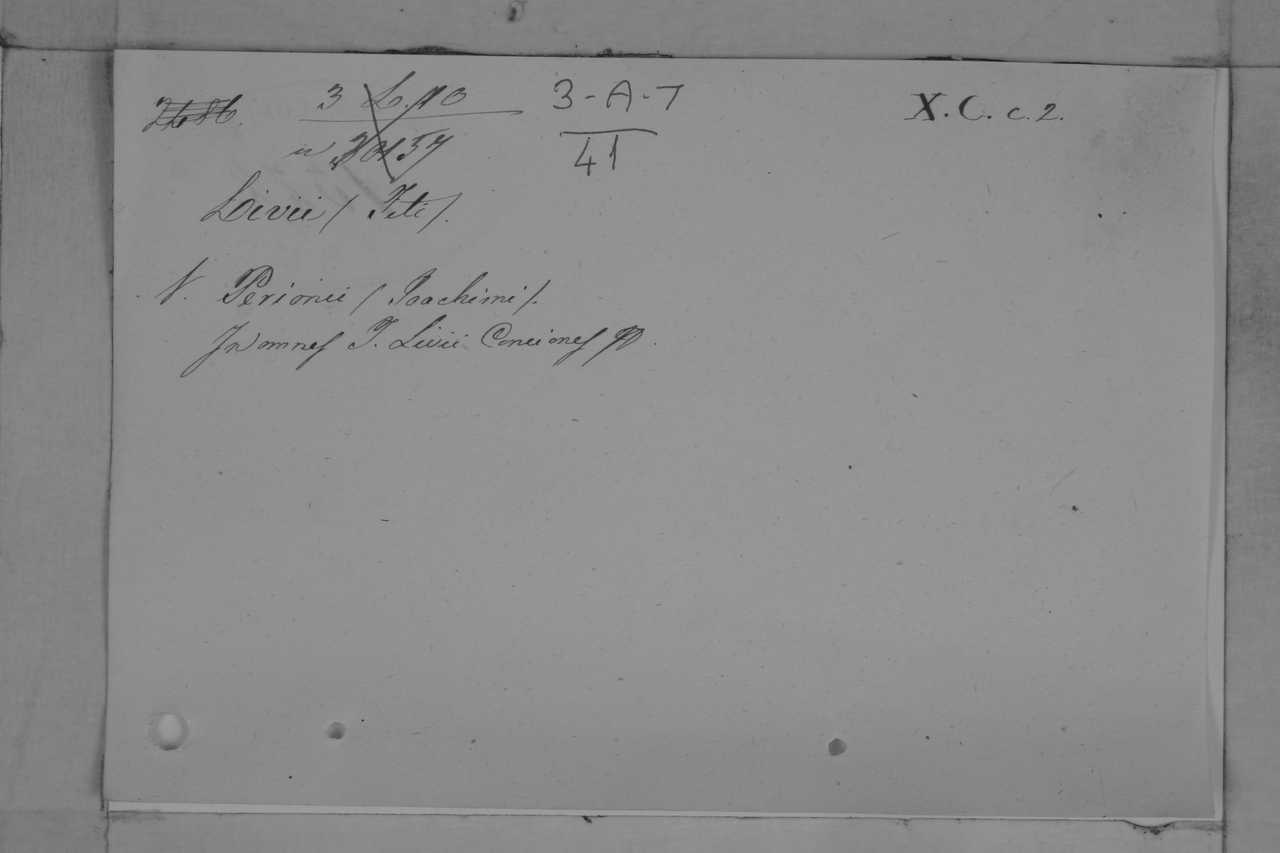 3 L. 10 3-A-7 X.C. c.2.
41
Livii (Titi).
V. Perionii (Joachimi).
In omnes T. Livii Conciones